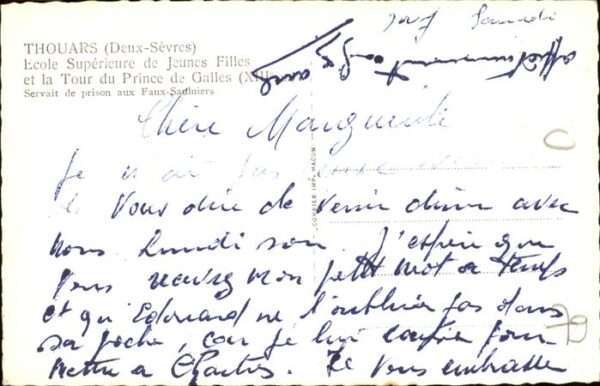 THOUARS (Deux-Sèvres)
Ecole Supérieure de Jeunes Filles
et la Tour du Prince de Galles (XII
Servait de prison aux Faux-Sauniers
Samedi
affectueusement
Chère Marguerite
Je n'ai pas
Vous dire de venir diner avec
nous Lundi soir. J'espère que
Vous recevrez mon petit mot a temps
et qu'Edouard ne l'oubliera pas dans
sa poche, car je lui confie pour
mettre a Chartres. Je vous embrasse